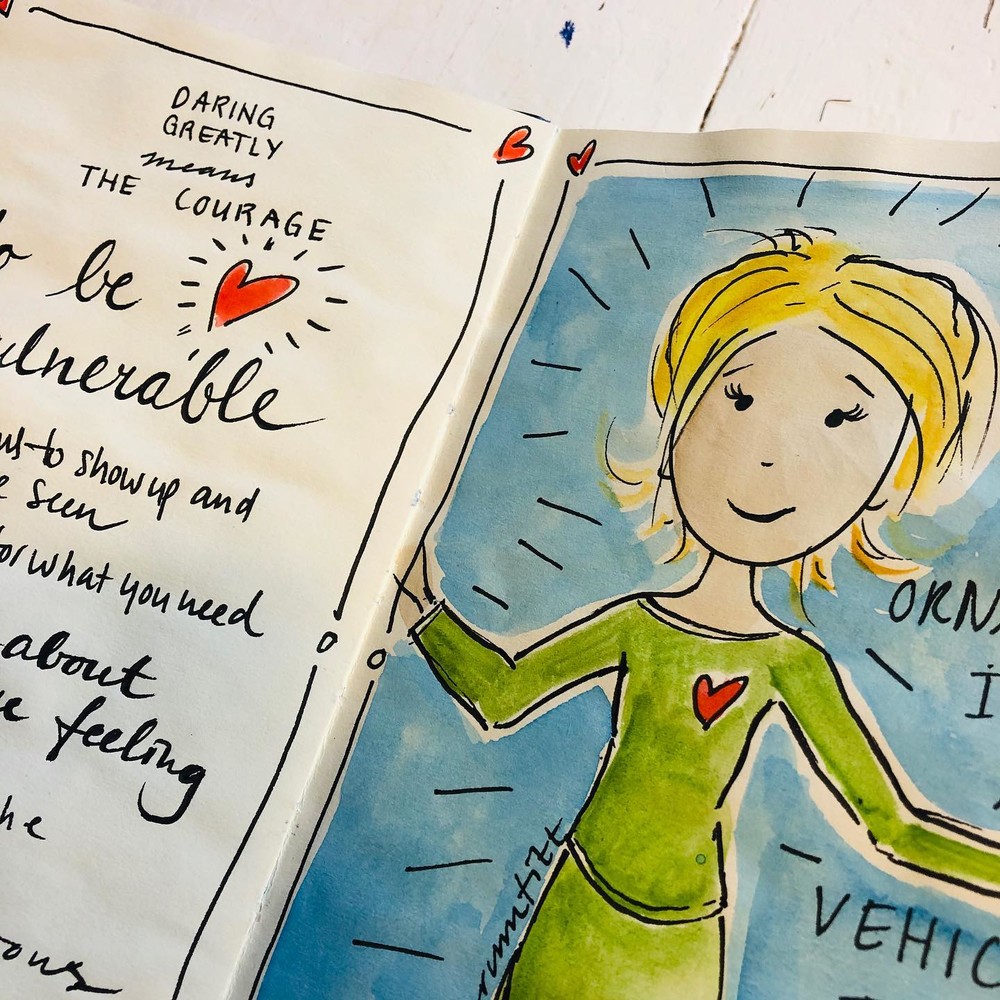 DARING
GREATLY
means
THE COURAGE
be
vulnerable
to show up and
seen
for what you need
about
feeling
the
ORN
VEHIC